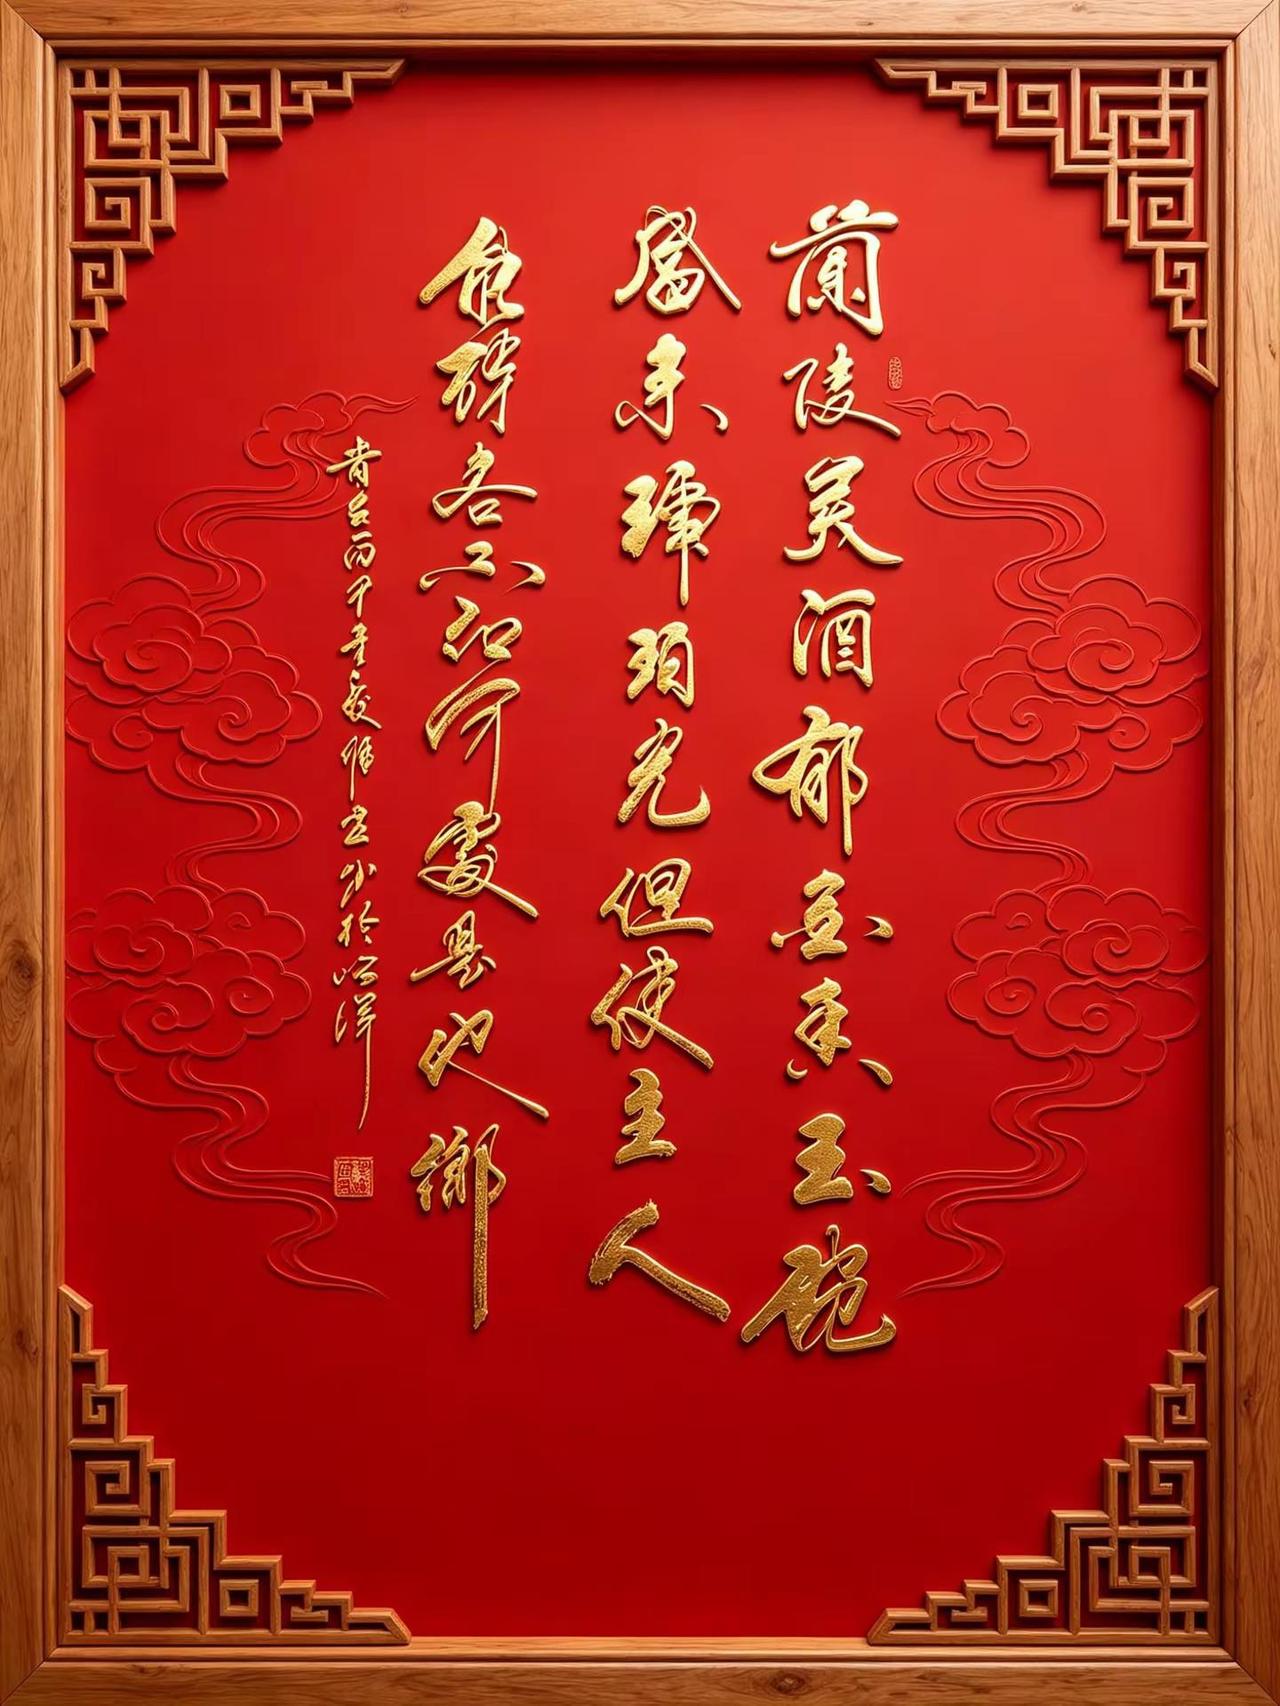 蘭陵美酒郁金香玉碗
盛来琥珀光但使主人
能醉客不知何處是他鄉
丙午年夏